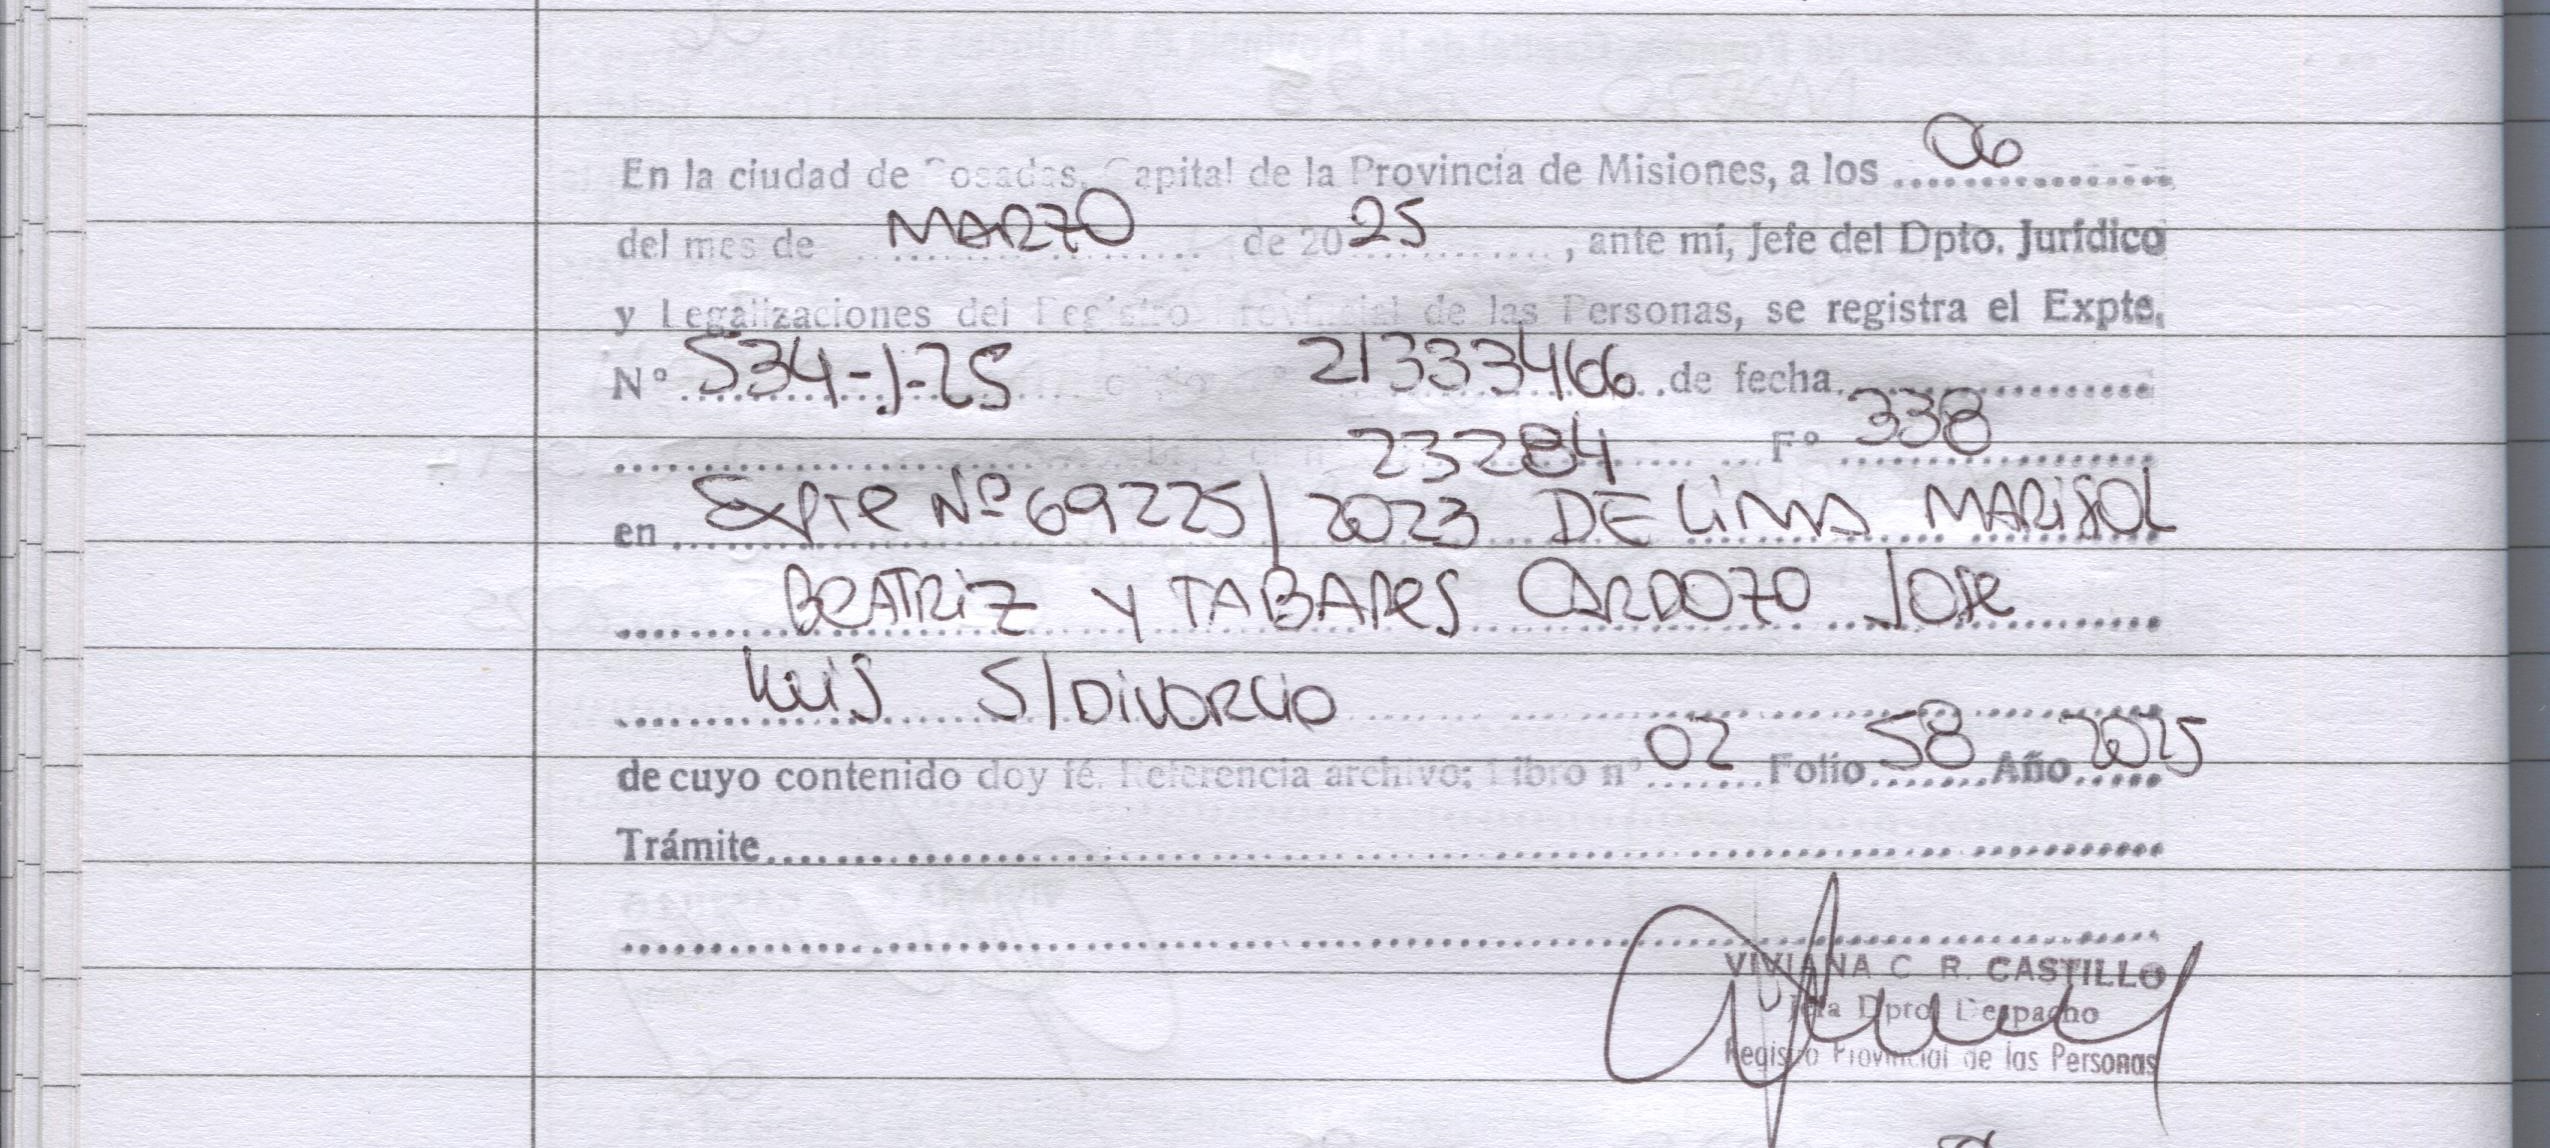 En la ciudad de Posadas, Capital de la Provincia de Misiones, a los 06
del mes de MARZO de 2025, ante mí, Jefe del Dpto. Jurídico
y Legalizaciones del Registro Provincial de las Personas, se registra el Expte.
N° 534-J-25 oficio 21333466 de fecha
23284 F° 338
en Expte Nº 69225/2023 DE LIMA MARISOL
BEATRIZ Y TABARES CARDOZO JOSE
LUIS S/DIVORCIO
de cuyo contenido doy fé. Referencia archivo: Libro n° 02 Folio 58 Año 2025
Trámite
VIVIANA C. R. CASTILLO
Jefa Dpto. Despacho
Registro Provincial de las Personas